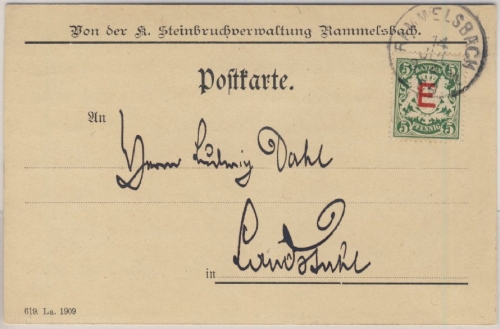 Von der K. Steinbruchverwaltung Rammelsbach.
RAMMELSBACH
14
Postkarte.
BAYERN
5 E 5
5 PFENNIG 5
An
Herrn Ludwig Dahl
in Landstuhl
619. La. 1909